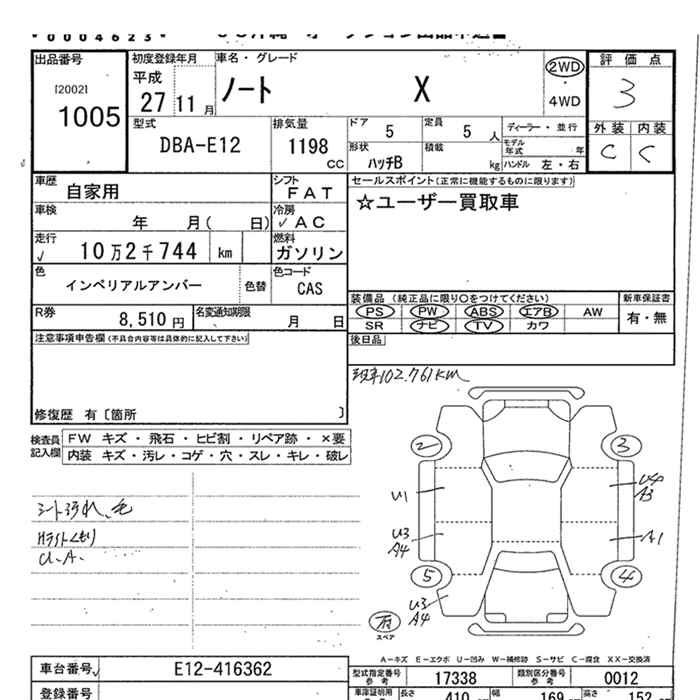 *0004623*
出品番号
[2002]
1005
初度登録年月
平成
27 11月
車名・グレード
ノート X
2WD
・
4WD
評価点
3
外装 内装
C C
型式
DBA-E12
排気量
1198
cc
ドア
5
定員
5 人
形状
ハッチB
積載
kg
ディーラー・並行
モデル年式 年
ハンドル 左・右
車歴
自家用
シフト
FAT
車検
年 月( 日)
冷房
✓AC
走行
✓ 10万2千744 km
燃料
ガソリン
色
インペリアルアンバー
色替
色コード
CAS
R券
8,510円
名変通知期限
月 日
セールスポイント(正常に機能するものに限ります)
☆ユーザー買取車
装備品(純正品に限り○をつけてください)
PS PW ABS エアB AW
SR ナビ TV カワ
新車保証書
有・無
後日品
注意事項申告欄(不具合内容等は具体的に記入して下さい)
修復歴 有〔箇所 〕
検査員記入欄
FW キズ・飛石・ヒビ割・リペア跡・×要
内装 キズ・汚レ・コゲ・穴・スレ・キレ・破レ
シート汚れ、毛
Hライトくもり
U.A.
102.761km
2 3
U1
U4
A3
U3
A4
A1
5 4
U3
A4
スペア
A-キズ E-エクボ U-凹み W-補修跡 S-サビ C-腐食 XX-交換済
車台番号
E12-416362
型式指定番号
参考
17338
類別区分番号
参考
0012
登録番号
車庫証明用
長さ 410
幅 169
高さ 152